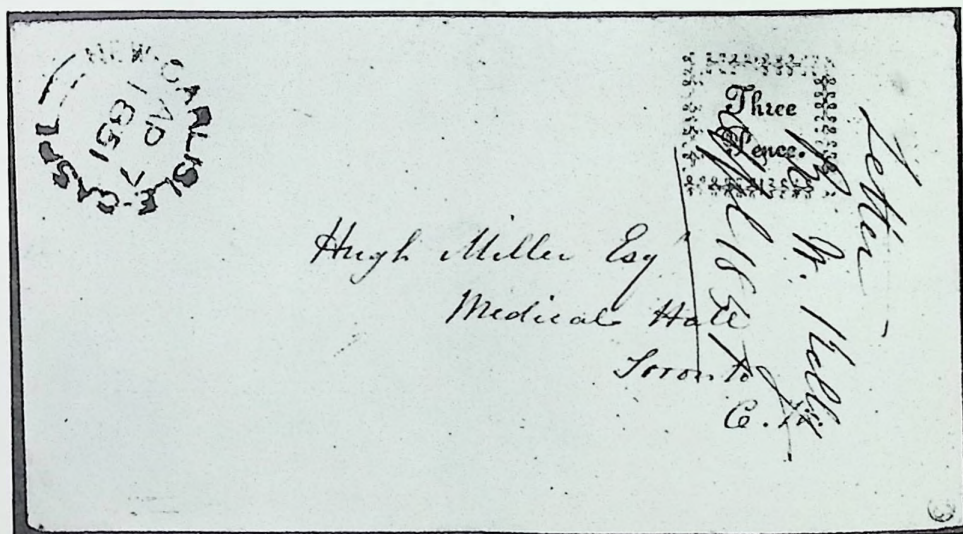 NEW CARLISLE GASPÉ
7 AP
1851
Three
Pence.
Letter
April 1851
Hugh Miller Esqr
Medical Hall
Toronto
C. W.